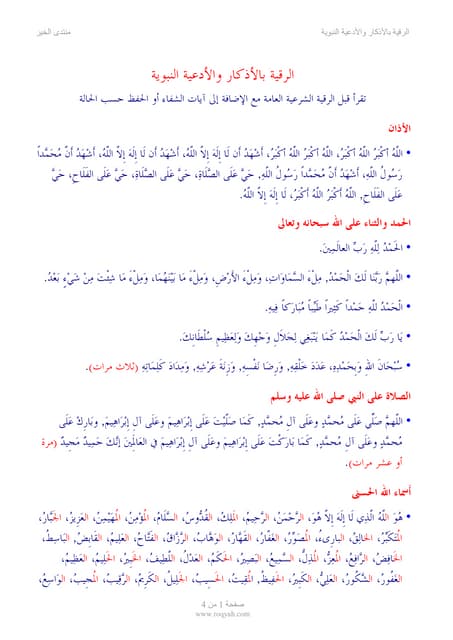 الرقية بالأذكار والأدعية النبوية
منتدى الخير
الرقية بالأذكار والأدعية النبوية
تقرأ قبل الرقية الشرعية العامة مع الإضافة إلى آيات الشفاء أو الحفظ حسب الحالة
الأذان
• اللَّهُ أَكْبَرُ اللَّهُ أَكْبَرُ، اللَّهُ أَكْبَرُ اللَّهُ أَكْبَرُ، أَشْهَدُ أَن لَا إِلَهَ إِلاَّ اللَّهُ، أَشْهَدُ أَن لَا إِلَهَ إِلاَّ اللَّهُ، أَشْهَدُ أَنَّ مُحَمَّداً
رَسُولُ اللَّهِ، أَشْهَدُ أَنَّ مُحَمَّداً رَسُولُ اللَّهِ, حَيَّ عَلَى الصَّلَاةِ، حَيَّ عَلَى الصَّلَاةِ، حَيَّ عَلَى الفَلَاحِ، حَيَّ
عَلَى الفَلَاحِ, اللَّهُ أَكْبَرُ اللَّهُ أَكْبَرُ، لَا إِلَهَ إِلاَّ اللَّهُ.
الحمد والثناء على الله سبحانه وتعالى
• الحَمْدُ لِلَّهِ رَبِّ العالَمِينَ.
• اللَّهمَّ رَبَّنَا لَكَ الْحَمْدُ, مِلْءَ السَّمَاوَاتِ، وَمِلْءَ الأَرْضِ، وَمِلْءَ مَا بَيْنَهُمَا، وَمِلْءَ مَا شِئْتَ مِنْ شَيْءٍ بَعْدُ.
• الْحَمْدُ للَّهِ حَمْداً كَثِيراً طَيِّباً مُبَارَكاً فِيهِ.
• يَا رَبِّ لَكَ الْحَمْدُ كَمَا يَنْبَغِي لِجَلَالِ وَجْهِكَ وَلِعَظِيمِ سُلْطَانِكَ.
• سُبْحَانَ اللهِ وَبِحَمْدِهِ، عَدَدَ خَلْقِهِ, وَرِضَا نَفْسِهِ, وَزِنَةَ عَرْشِهِ, وَمِدَادَ كَلِمَاتِهِ (ثلاث مرات).
الصلاة على النبي صلى الله عليه وسلم
• اللَّهمَّ صَلِّي عَلَى مُحَمَّدٍ وعَلَى آلِ مُحَمَّدٍ, كَمَا صَلَّيْتَ عَلَى إِبْرَاهِيمَ وعَلَى آلِ إِبْرَاهِيمَ, وَبَارِكْ عَلَى
مُحَمَّدٍ وعَلَى آلِ مُحَمَّدٍ, كَمَا بَارَكْتَ عَلَى إِبْرَاهِيمَ وعَلَى آلِ إِبْرَاهِيمَ فِي العَالَمِينَ إِنَّكَ حَمِيدٌ مَجِيدٌ (مرة
أو عشر مرات).
أسماء الله الحسنى
• هُوَ اللَّهُ الَّذِي لَا إِلَهَ إِلاَّ هُوَ, الرَّحْمَنُ, الرَّحِيمُ, المَلِكُ, القُدُّوسُ, السَّلَامُ, المُؤْمِنُ, المُهَيْمِنُ, العَزِيزُ, الجَبَّارُ,
المُتَكَبِّرُ, الخَالِقُ, البارىءُ, المُصَوِّرُ, الغَفَّارُ, القَهَّارُ, الوَهَّابُ, الرَّزَّاقُ, الفَتَّاحُ, العَلِيمُ, القَابِضُ, البَاسِطُ,
الخَافِضُ, الرَّافِعُ, المُعِزُّ, المُذِلُّ, السَّمِيعُ, البَصِيرُ, الحَكَمُ, العَدْلُ, اللَّطِيفُ, الخَبِيرُ, الحَلِيمُ, العَظِيمُ,
الغَفُورُ, الشَّكُورُ, العَلِيُّ, الكَبِيرُ, الحَفِيظُ, المُقِيتُ, الحَسِيبُ, الجَلِيلُ, الكَرِيمُ, الرَّقِيبُ, المُجِيبُ, الوَاسِعُ,
صفحة 1 من 4
www.roqyah.com